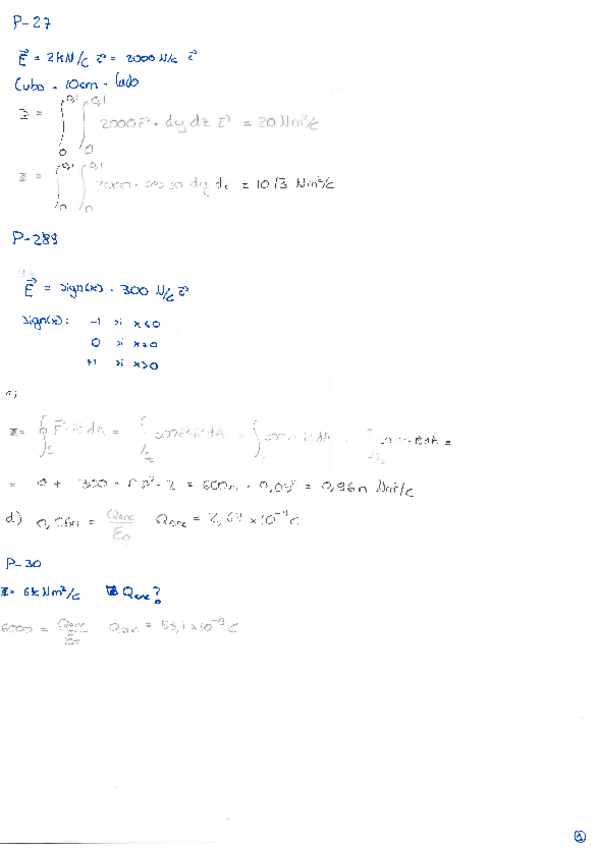 P-27
E⃗ = 2kN/C i⃗ = 2000 N/C i⃗
Cubo - 10cm - lado
Φ = ∫₀^0,1 ∫₀^0,1 2000 i⃗ · dy dz i⃗ = 20 Nm²/C
Φ = ∫₀^0,1 ∫₀^0,1 2000 · cos 30 dy dz = 10√3 Nm²/C
P-289
E⃗ = sign(x) · 300 N/C i⃗
sign(x): -1 si x<0
0 si x=0
+1 si x>0
Φ = ∮ dA = ∫ dA
= 0 + 300 · π r² · 2 = 600π · = 0,96π Nm²/C
d) 0,96π = Qenc/ε₀ Qenc = 2,67 × 10⁻¹¹ C
P-30
Φ = 6k Nm²/C Qenc?
6000 = Qenc/ε₀ Qenc = 53,1 × 10⁻⁹ C
1